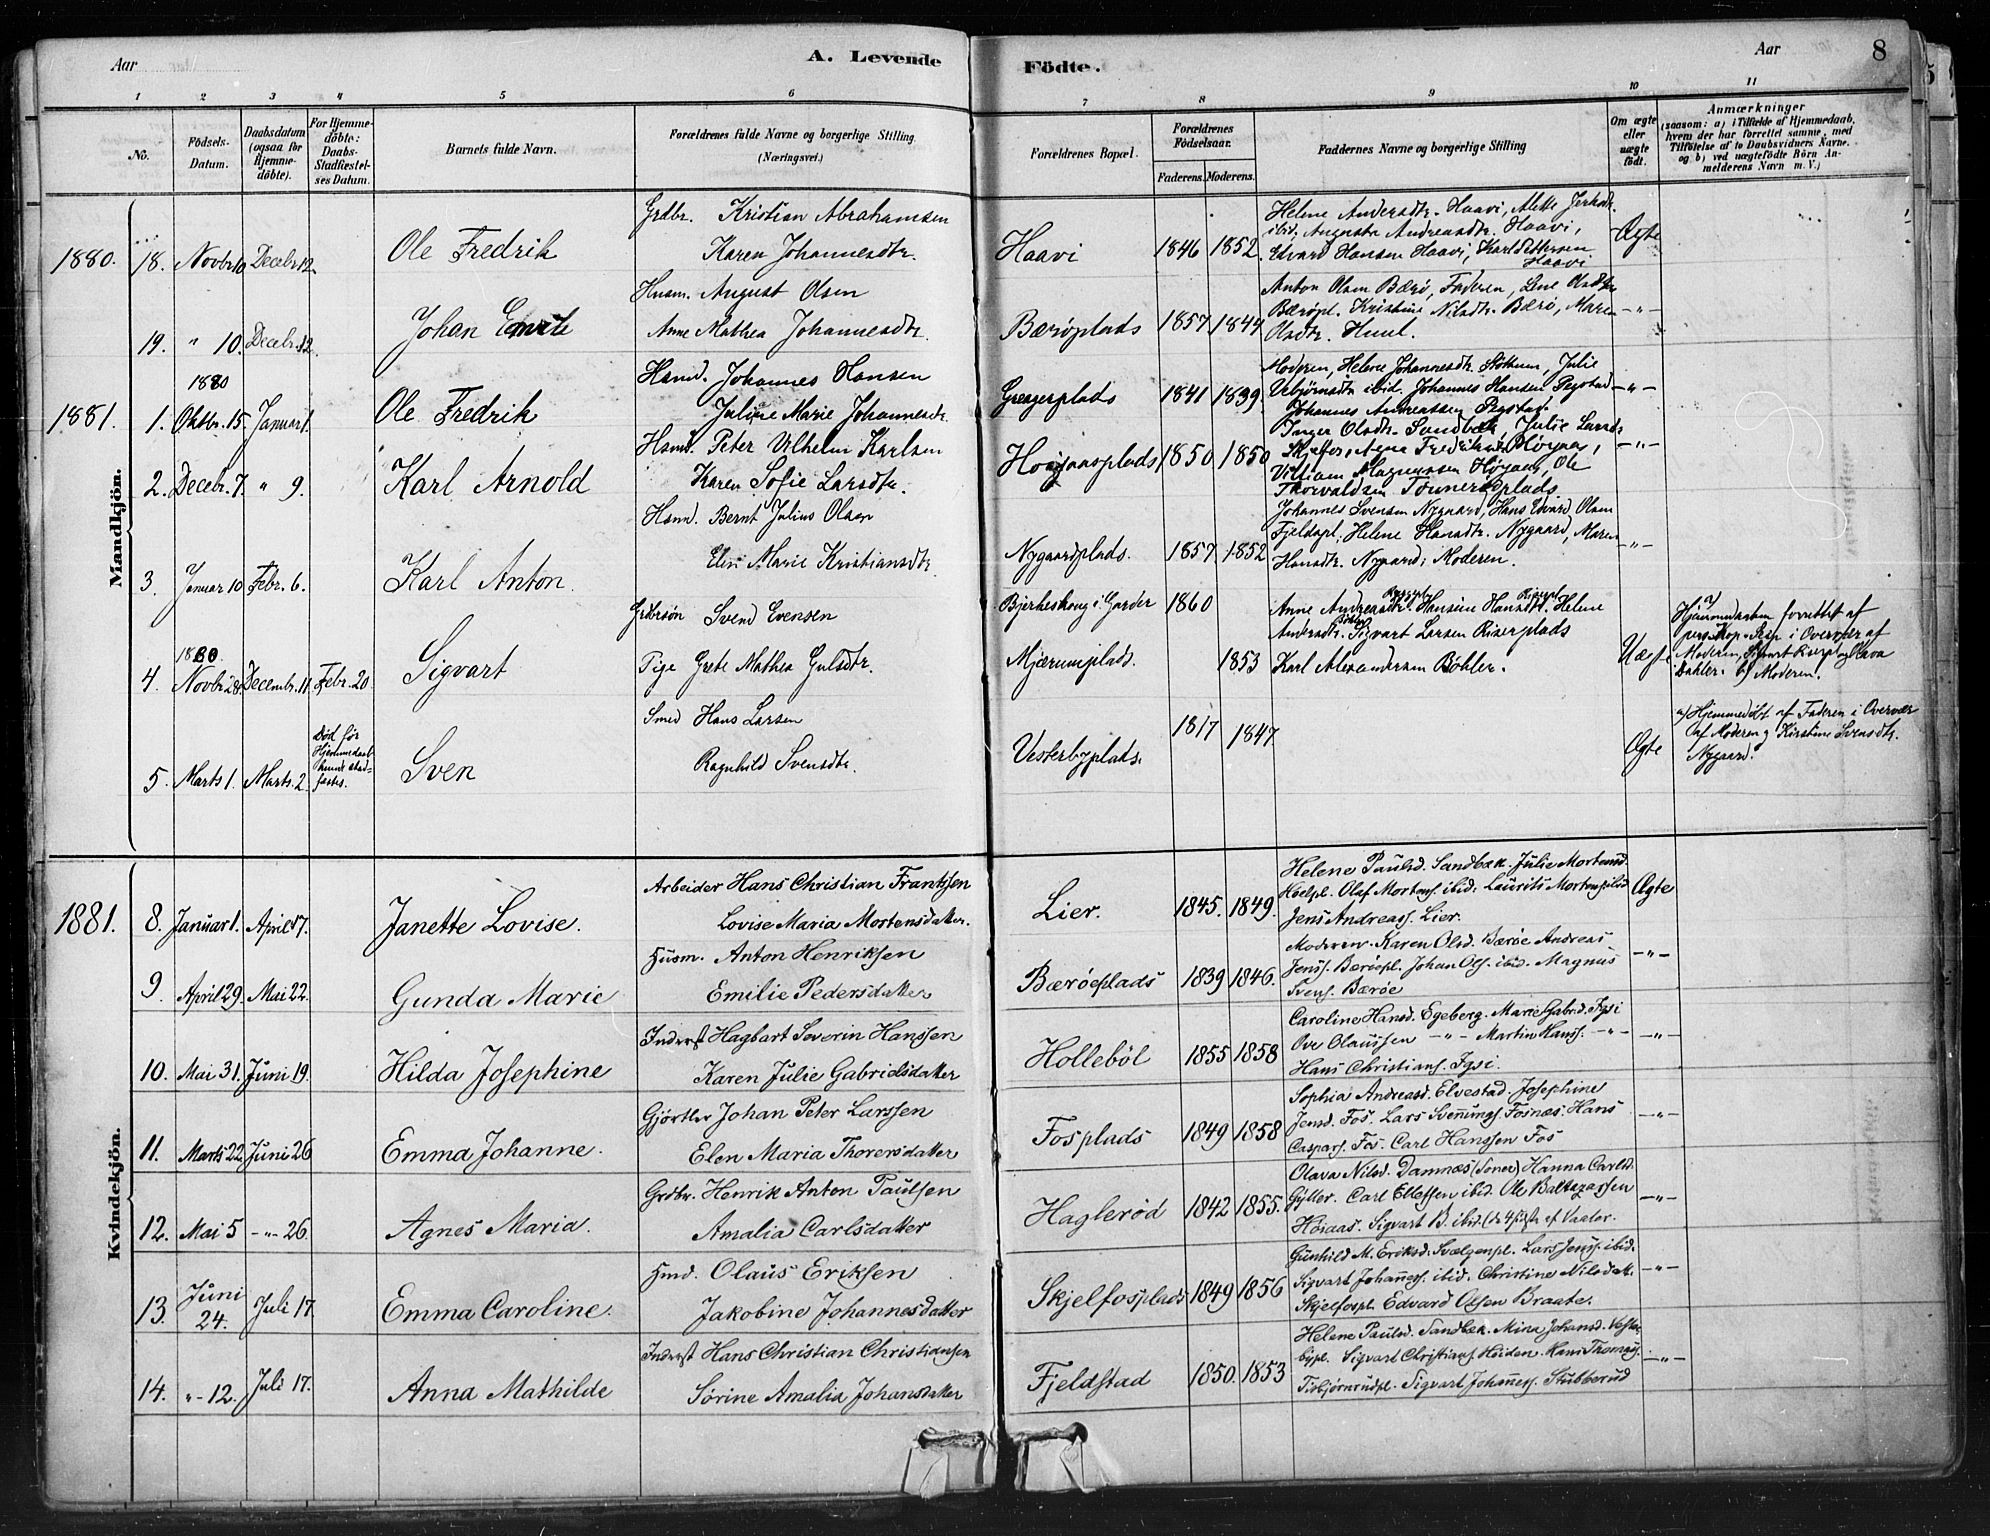 Aar
A. Levende
Födte.
Aar
8
1 2 3 4 5 6 7 8 9 10 11
No.
Födsels-
Datum.
Daabsdatum
(ogsaa for
Hjemme-
döbte).
For Hjemme-
döbte:
Daabs-
Stadfæstel-
ses Datum.
Barnets fulde Navn.
Forældrenes fulde Navne og borgerlige Stilling.
(Næringsvei.)
Forældrenes Bopæl.
Forældrenes
Födselsaar.
Faderens. Moderens.
Faddernes Navne og borgerlige Stilling
Om ægte
eller
uægte
født.
Anmærkninger
(saasom: a) i Tilfælde af Hjemmedaab,
hvem der har forrettet samme, med
Tilføielse af to Daabsvidners Navne.
og b) ved uægtefödte Börn An-
melderens Navn m. V.)
Mandkjön.
1880. 18. Novbr 10 Decebr 12. Ole Fredrik
Grdbr. Kristian Abrahamsen
Karen Johannesdtr.
Haavi 1846 1852
Helene Andersdtr. Haavi, Alette
ibid. Augusta Andreasdtr. Haavi,
Edvard Hansen Haavi, Karl Pettersen
Haavi
Ægte
19. " 10. Decebr. 12. Johan Emil
Husm. August Olsen
Anne Mathea Johannesdtr.
Bærøplads 1857 1844
Anton Olsen Bærø, Faderen, Lene Olsdtr
Bærøpl. Kristine Nilsdtr. Bærø, Maren
Olsdtr. Huul.
-"-
1881. 1. 1880 Oktbr. 15. Januar 1. Ole Fredrik
Hsmd. Johannes Hansen
Juline Marie Johannesdtr.
Grægerplads 1841 1839.
Moderen, Helene Johannesdtr. Støttum, Julie
ibid, Johannes Hansen Pegstad
Johannes Andreassen Pegstad.
-"-
2. Decebr. 7. " 9. Karl Arnold
Hsmd. Peter Vilhelm Karlsen
Karen Sofie Larsdtr.
Høigaasplads 1850 1850
Inger Olsdtr. Sandbæk, Julie
Høgaas,
Villiam Magnussen Høgaas, Ole
Thorvaldsen
-"-
3. Januar 10 Febr. 6. Karl Anton.
Hsmd. Bernt Julius Olsen
Elen Marie Kristiansdtr.
Nygaardplads. 1857 1852
Johannes Svensen Nygaard, Hans Edvard Olsen
Fjeldspl. Helene Hansdtr. Nygaard, Maren
Hansdtr. Nygaard, Moderen.
-"-
4. 1880. Novbr. 28. Decembr. 11. Febr. 20 Sigvart
Grdbrsøn Svend Evensen
Pige Grete Mathea Gulsdtr.
Bjerkeskoug i Garder 1860
Mjærumplads. 1853
Anne Andreasdtr. Hansine Hansdtr. Helene
Andersdtr. Sigvart Larsen Riserplads
Karl Alexandersen Bøhler.
Uægte
a)
Hjemmedaaben forrettet af
pers. Kap. i Overvær af
Moderen, Sigvart og Olava
Dahler. b) Moderen.
5. Marts 1. Marts 2. Død før
Hjemmedaab
kunde stad-
fæstes. Sven
Smed Hans Larsen
Ragnhild Svensdtr.
Vesterbyplads. 1817 1847.
Ægte
a) Hjemmedøbt af Faderen i Overvær
af Moderen og Kirstine Svensdtr.
Nygaard.
Kvindekjön.
1881. 8. Januar 1. April 17. Janette Lovise.
Arbeider Hans Christian Frantsen
Lovise Maria Mortensdatter.
Lier. 1845. 1849.
Helene Paulsd. Sandbæk. Julie Mortensd.
Hoelpl. Olaf Mortens. ibid. Laurits Mortens. ibid
Jens Andreass. Lier.
Ægte
9. April 29. Mai 22. Gunda Marie
Husm. Anton Henriksen
Emilie Pedersdatter
Bærøeplads 1839 1846.
Moderen. Karen Olsd. Bærøe Andreas
Jenss. Bærøepl. Johan Ols. ibid. Magnus
Svens. Bærøe
-"-
10. Mai 31. Juni 19. Hilda Josephine
Inderst Hagbart Severin Hanssen
Karen Julie Gabrielsdatter
Hollebøl 1855 1858
Caroline Hansd. Egeberg. Marie Gabr.d. Igsi
Ove Olaussen -"- Martin Hanss. -"-
Hans Christians. Igsi.
-"-
11. Marts 22. Juni 26 Emma Johanne.
Gjørtler Johan Peter Larssen
Elen Maria Thorersdatter
Fosplads 1849 1858
Sophia Andreasd. Elvestad. Josephine
Jensd. Fos. Lars Svennings. Fosnæs. Hans
Caspars. Fos. Carl Hanssen Fos
-"-
12. Mai 5 -"- 26. Agnes Maria.
Grdbr. Henrik Anton Paulsen
Amalia Carlsdatter
Haglerød 1842 1855.
Olava Nilsd. Damnæs (Soner) Hanna Carlsd.
Gyller. Carl Ellefsen ibid. Ole Baltazarsen
Høiaas. Sigvart B. ibid. (de 4 sidste af Vaaler.
-"-
13. Juni
24. Juli 17. Emma Caroline.
Hmd. Olaus Eriksen
Jakobine Johannesdatter
Skjelfosplads 1849 1856
Gunhild M. Eriksd. Svælgenpl. Lars Jenss. ibid.
Sigvart Johanness. ibid. Christine Nilsdatt.
Skjelfospl. Edvard Olsen Braate.
-"-
14. "- 12. Juli 17. Anna Mathilde
Inderst Hans Christian Christiansen
Sørine Amalia Johansdatter
Fjeldstad 1850. 1853
Helene Paulsd. Sandbæk. Mina Johansd. Vester-
bypl. Sigvart Christians. Heiden. Hans Thomass.
Tisbjørnrudpl. Sigvart Johanness. Stubberud
-"-